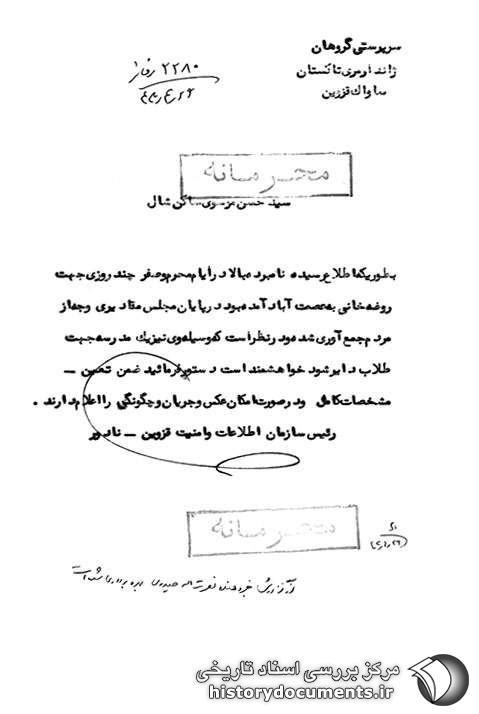 سرپرستی گروهان
ژاندارمری تاکستان
ساواك قزوین
۲۲۸۰
محرمانه
سید حسن موسوی ساکن شال
بطوریکه اطلاع رسیده نامبرده بالا در ایام محرم و صفر چند روزی جهت
روضه خانی به عصمت آباد آمده بود و در پایان مجلس مقادیری وجه از
مردم جمع آوری شده و در نظر است که وسیله وی نیز یك مدرسه جهت
طلاب دایر شود خواهشمند است دستور فرمائید ضمن تعیین –
مشخصات کامل و در صورت امکان عکس وجریان و چگونگی را اعلام دارند .
رئیس سازمان اطلاعات وامنیت قزوین –
محرمانه
بهره برداری شده است
مرکز بررسی اسناد تاریخی
historydocuments.ir